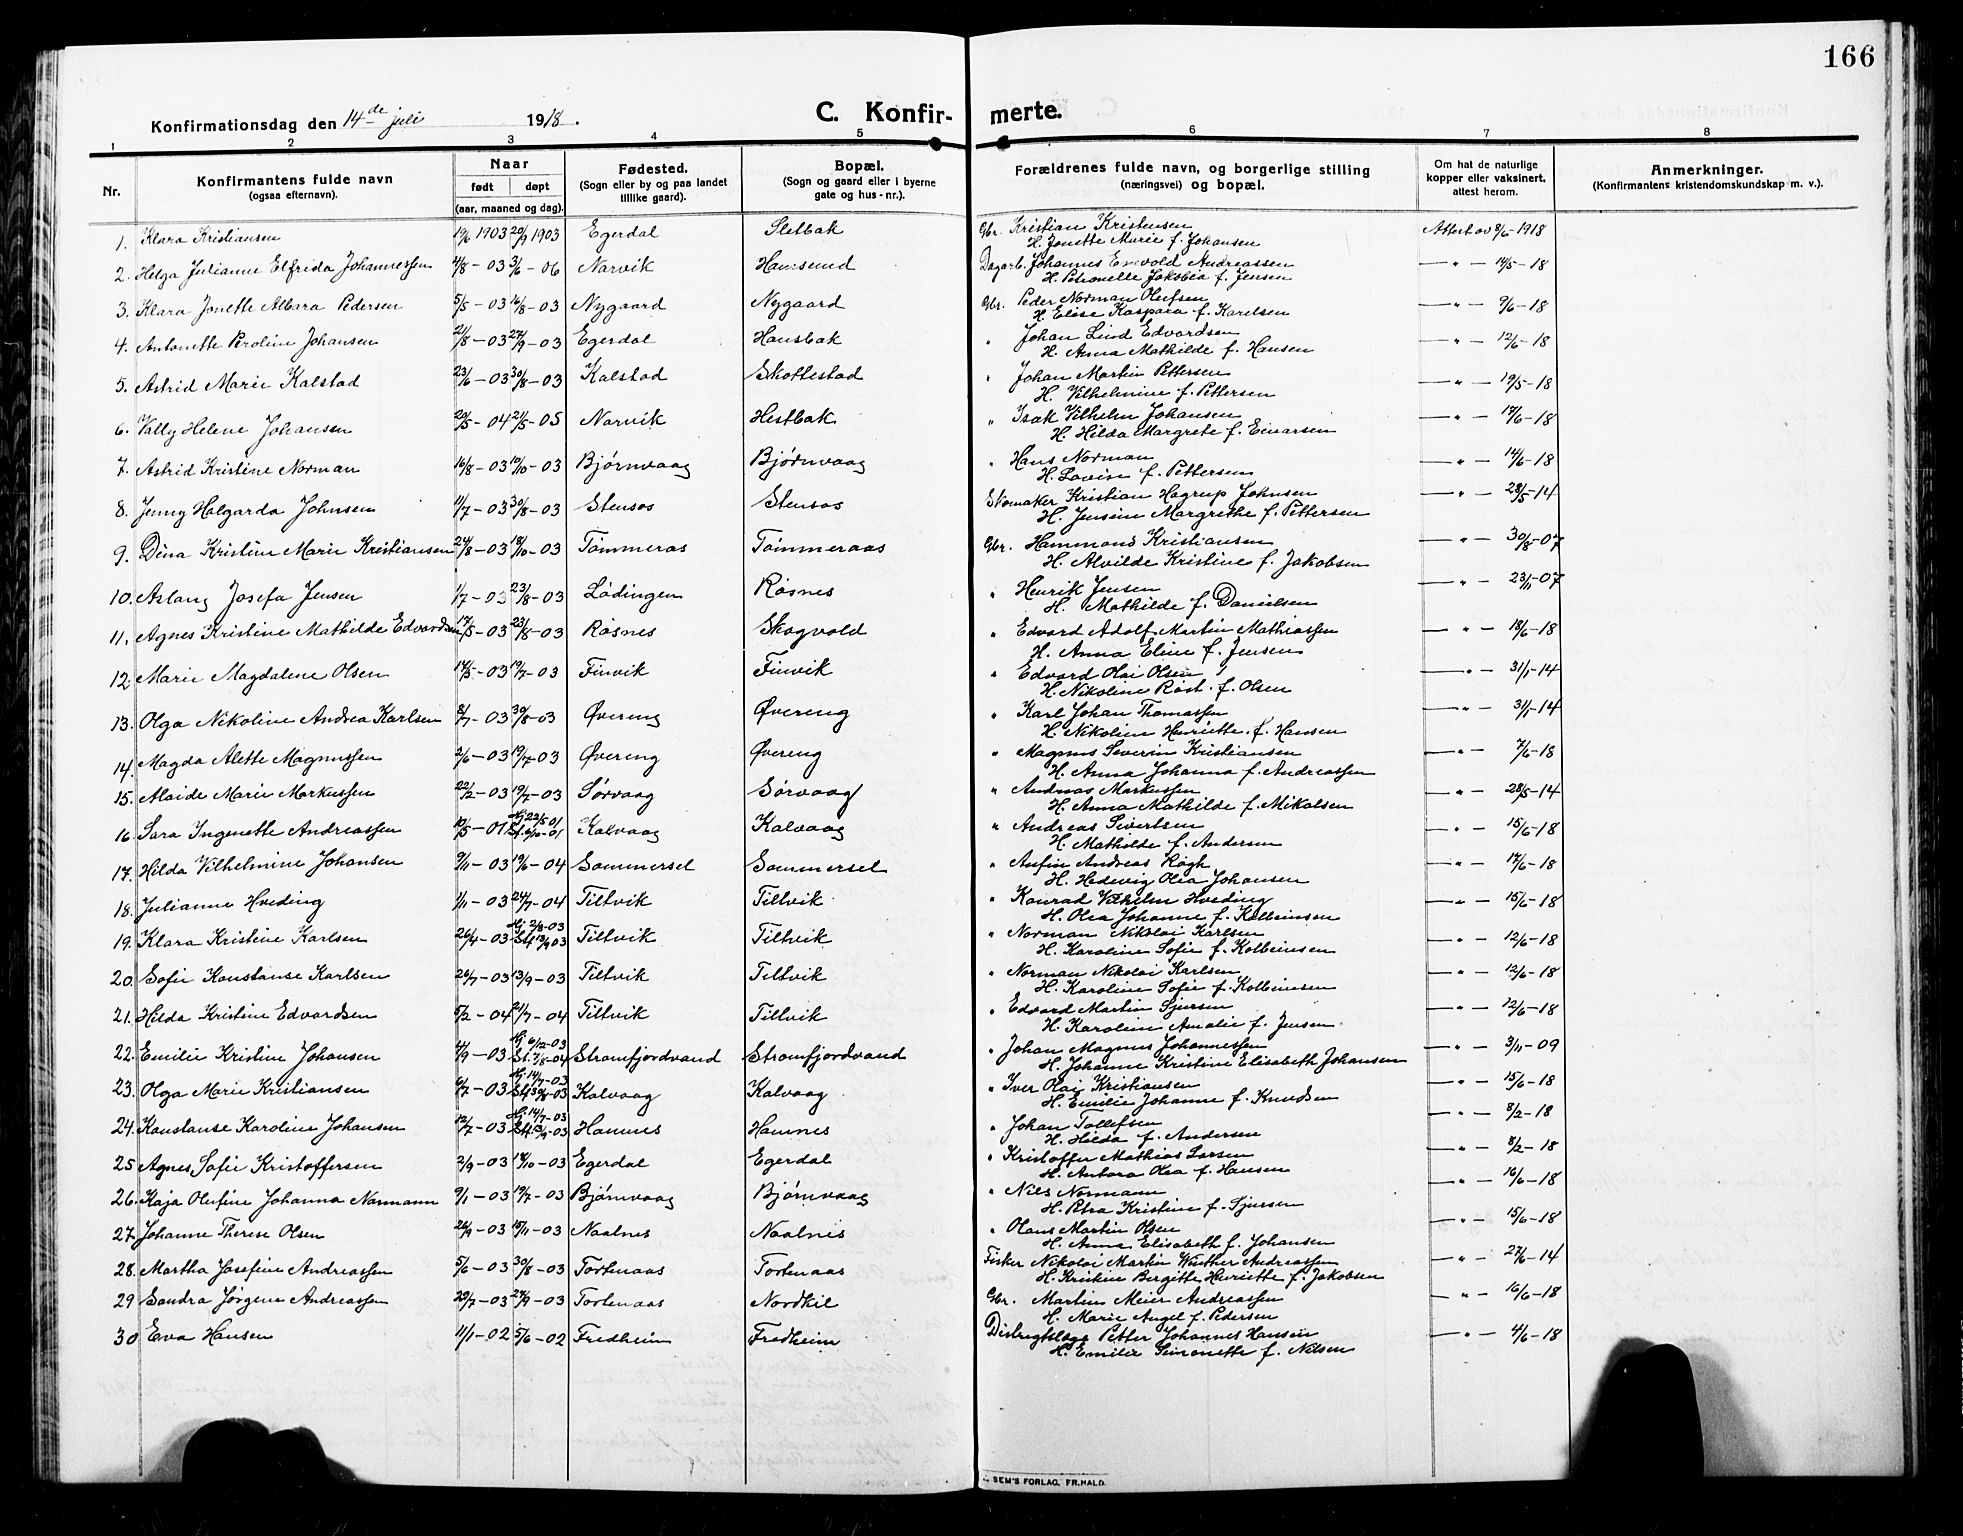 166
Konfirmationsdag den 14de juli 1918.
C. Konfirmerte.
1 2 3 4 5 6 7 8
Nr.
Konfirmantens fulde navn
(ogsaa efternavn).
Naar
født døpt
(aar, maaned og dag).
Fødested.
(Sogn eller by og paa landet
tillike gaard).
Bopæl.
(Sogn og gaard eller i byerne
gate og hus-nr.).
Forældrenes fulde navn, og borgerlige stilling
(næringsvei) og bopæl.
Om hat de naturlige
kopper eller vaksinert,
attest herom.
Anmerkninger.
(Konfirmantens kristendomskundskap m. v.).
1. Klara Kristiansen 19/6 1903 20/9 1903 Egerdal Sletbak Gbr. Kristian Kristensen Attest av 8/6-1918
H. Jonette Marie f. Johansen
2. Helga Julianne Elfrida Johannessen 4/8-03 3/6-06 Narvik Hamsund Dagarb. Johannes Andreassen — " — 14/5-18
H. Petronelle Jakobia f. Jensen
3. Klara Jonette Albara Pedersen 5/5-03 16/8-03 Nygaard Nygaard Gbr. Peder Norman Olufsen — " — 9/6-18
H. Elise Kaspara f. Karelsen
4. Antonette Peroline Johansen 21/8-03 27/9-03 Egerdal Hansbak " Johan Lind Edvardsen — " — 12/6-18
H. Anna Mathilde f. Hansen
5. Astrid Marie Kalstad 23/6-03 30/8-03 Kalstad Skottestad " Johan Martin Pettersen — " — 19/5-18
H. Vilhelmine f. Pettersen
6. Vally Helene Johansen 20/5-04 21/5-05 Narvik Hestbak " Isak Vilhelm Johansen — " — 17/6-18
H. Hilda Margrete f. Einarsen
7. Astrid Kristine Norman 16/8-03 10/10-03 Bjørnvaag Bjørnvaag " Hans Norman — " — 14/6-18
H. Lovise f. Pettersen
8. Jenny Halgarda Johnsen 11/7-03 30/8-03 Stensos Stensos Skomaker Kristian Hagrup Johnsen — " — 28/5-14
H. Jensine Margrethe f. Pettersen
9. Dina Kristine Marie Kristiansen 24/8-03 18/10-03 Tømmeras Tømmeraas Gbr. Hammond Kristiansen — " — 30/8-07
H. Alvilde Kristine f. Jakobsen
10. Aslaug Josefa Jensen 1/7-03 23/8-03 Lødingen Røsnes " Henrik Jensen — " — 23/11-07
H. Mathilde f. Danielsen
11. Agnes Kristine Mathilde Edvardsen 17/5-03 23/8-03 Røsnes Skogvold " Edvard Adolf Martin Mathiassen — " — 18/6-18
H. Anna Eline f. Jensen
12. Marie Magdalene Olsen 14/5-03 19/7-03 Finvik Finvik " Edvard Olai Olsen — " — 31/1-14
H. Nikoline Røst. f. Olsen
13. Olga Nikoline Andrea Karlsen 8/7-03 30/8-03 Øvereng Øvereng " Karl Johan Thomassen — " — 31/1-14
H. Nikoline Henriette. f. Hansen
14. Magda Alette Magnussen 2/6-03 19/7-03 Øvereng Øvereng " Magnus Severin Kristiansen — " — 7/6-18
H. Anna Johanna f. Andreassen
15. Alaide Marie Markussen 22/2-03 19/7-03 Sørvaag Sørvaag " Andreas Markussen — " — 28/5-14
H. Anna Mathilde f. Mikalsen
16. Sara Ingenette Andreassen 10/5-01 Hj 22/5-01 St. 6/10-01 Kalvaag Kalvaag " Andreas Sivertsen — " — 15/6-18
H. Mathilde f. Andersen
17. Hilda Vilhelmine Johansen 9/11-03 19/6-04 Sommersel Sommersel " Anfin Andreas Kogh — " — 17/6-18
H. Hedevig Olea Johansen
18. Julianne Hveding 1/11-03 24/7-04 Tiltvik Tiltvik " Konrad Vilhelm Hveding — " — 15/6-18
H. Olea Johanne f. Kolbeinsen
19. Klara Kristine Karlsen 26/4-03 Hj. 2/8-03 St. 13/9-03 Tiltvik Tiltvik " Norman Nikolai Karlsen — " — 12/6-18
H. Karoline Sofie f. Kolbeinsen
20. Sofie Konstanse Karlsen 26/7-03 13/9-03 Tiltvik Tiltvik " Norman Nikolai Karlsen — " — 12/6-18
H. Karoline Sofie f. Kolbeinsen
21. Hilda Kristine Edvardsen 5/2-04 21/7-04 Tiltvik Tiltvik " Edvard Martin Sjursen — " — 12/6-18
H. Karoline Amalie f. Jensen
22. Emilie Kristine Johansen 4/9-03 Hj 6/12-03 St. 7/8-04 Strømfjordvand Strømfjordvand " Johan Magnus Johannessen — " — 3/11-09
H. Johanne Kristine Elisabeth Johansen
23. Olga Marie Kristiansen 6/7-03 Hj. 14/7-03 St. 30/8-03 Kalvaag Kalvaag " Iver Olai Kristiansen — " — 15/6-18
H. Emilie Johanne f. Knudsen
24. Konstanse Karoline Johansen 12/7-03 Hj. 14/7-03 St. 13/9-03 Hamnes Hamnes " Johan Tollefsen — " — 8/2-18
H. Hilda f. Andersen
25 Agnes Sofie Kristoffersen 2/9-03 18/10-03 Egerdal Egerdal " Kristoffer Mathias Larsen — " — 8/2-18
H. Antora Olea f. Hansen
26. Kaja Olufine Johanna Normann 9/1-03 19/7-03 Bjørnvaag Bjørnvaag " Nils Normann — " — 16/6-18
H. Petra Kristine f. Sjursen
27. Johanne Therese Olsen 26/9-03 15/11-03 Naalnes Naalnes " Hans Martin Olsen — " — 15/6-18
H. Anna Elisabeth f. Johansen
28. Martha Josefine Andreassen 5/6-03 30/8-03 Tortenaas Tortenaas Fisker Nikolai Martin Winther Andreassen — " — 27/6-14
H. Kristine Bergitte Henriette f. Jakobsen
29 Sandra Jørgine Andreassen 29/7-03 27/9-03 Tortenaas Nordkil Gbr. Martin Meier Andreassen — " — 16/6-18
H. Marie Angel f. Pedersen
30 Eva Hansen 11/1-02 5/6-02 Fredheim Fredheim Distrigtslæge Petter Johannes Hansen — " — 4/6-18
H. Emilie Simonette f. Nilsen
SEM'S FORLAG, FR.HALD.